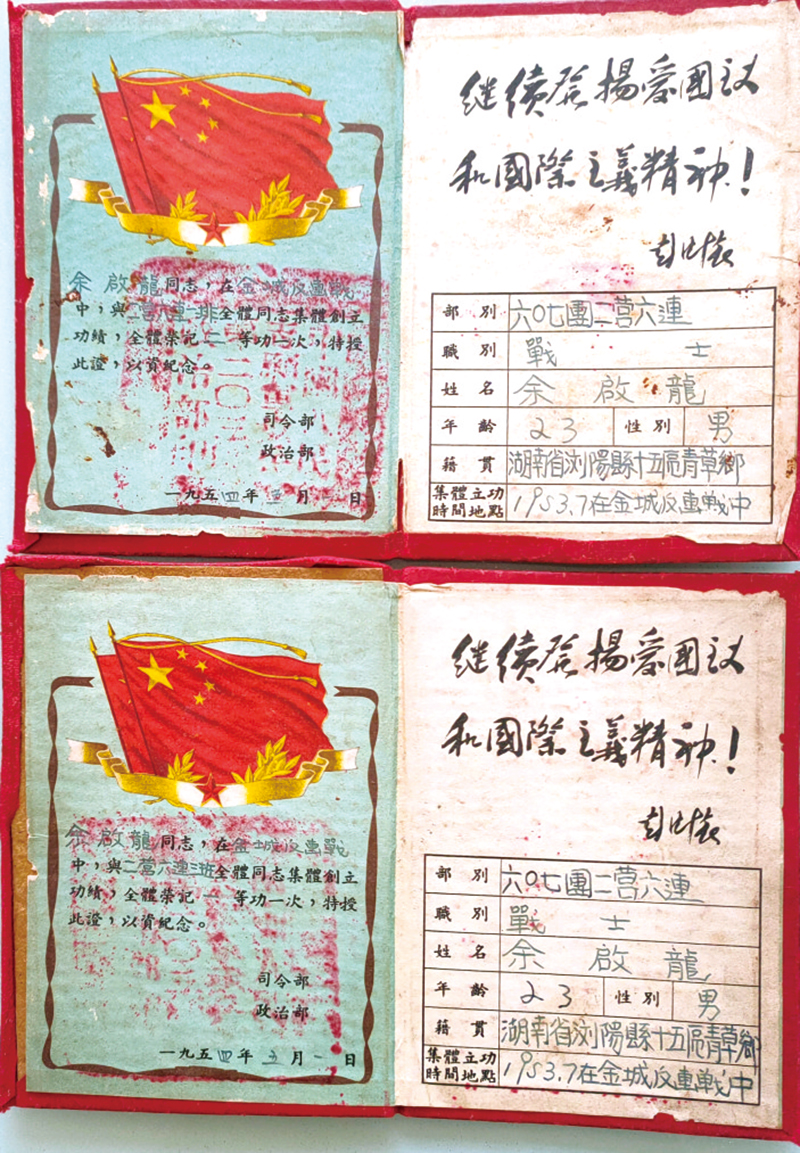 余啟龍同志，在金城反击戰
中，與二营六連二排全體同志集體創立
功績，全體榮記二等功一次，特授
此證，以資紀念。
司令部
政治部
一九五四年五月一日
继續發揚爱國主义
和國際主義精神！
彭德懷
部別 六〇七團二营六連
職別 戰士
姓名 余啟龍
年齡 23 性別 男
籍貫 湖南省浏陽縣十五區青草鄉
集體立功時間地點 1953.7在金城反击戰中
余啟龍同志，在金城反击戰
中，與二营六連三班全體同志集體創立
功績，全體榮記一等功一次，特授
此證，以資紀念。
司令部
政治部
一九五四年五月一日
继續發揚爱國主义
和國際主義精神！
彭德懷
部別 六〇七團二营六連
職別 戰士
姓名 余啟龍
年齡 23 性別 男
籍貫 湖南省浏陽縣十五區青草鄉
集體立功時間地點 1953.7在金城反击戰中